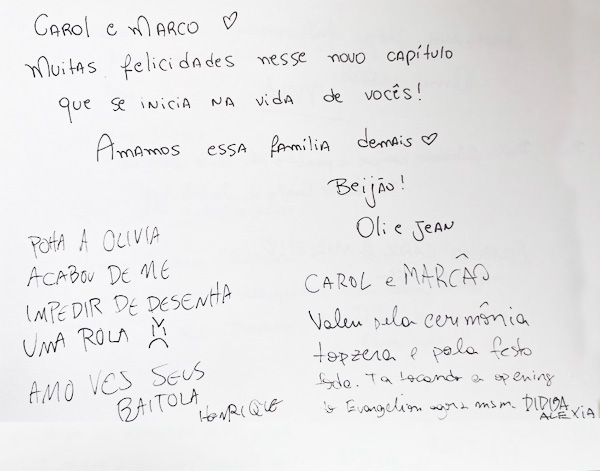 CAROL e MARCO ♡
Muitas felicidades nesse novo capítulo
que se inicia na vida de vocês!
Amamos essa família demais ♡
Beijão!
Oli e Jean
POHA A OLIVIA
ACABOU DE ME
IMPEDIR DE DESENHA
UMA ROLA
AMO VCS SEUS
BAITOLA
HENRIQUE
CAROL e MARCÃO
Valeu pela cerimônia
topzera e pela festa
foda. Ta tocando a opening
Evangelion agora msm. DIDIDA
ALEXIA